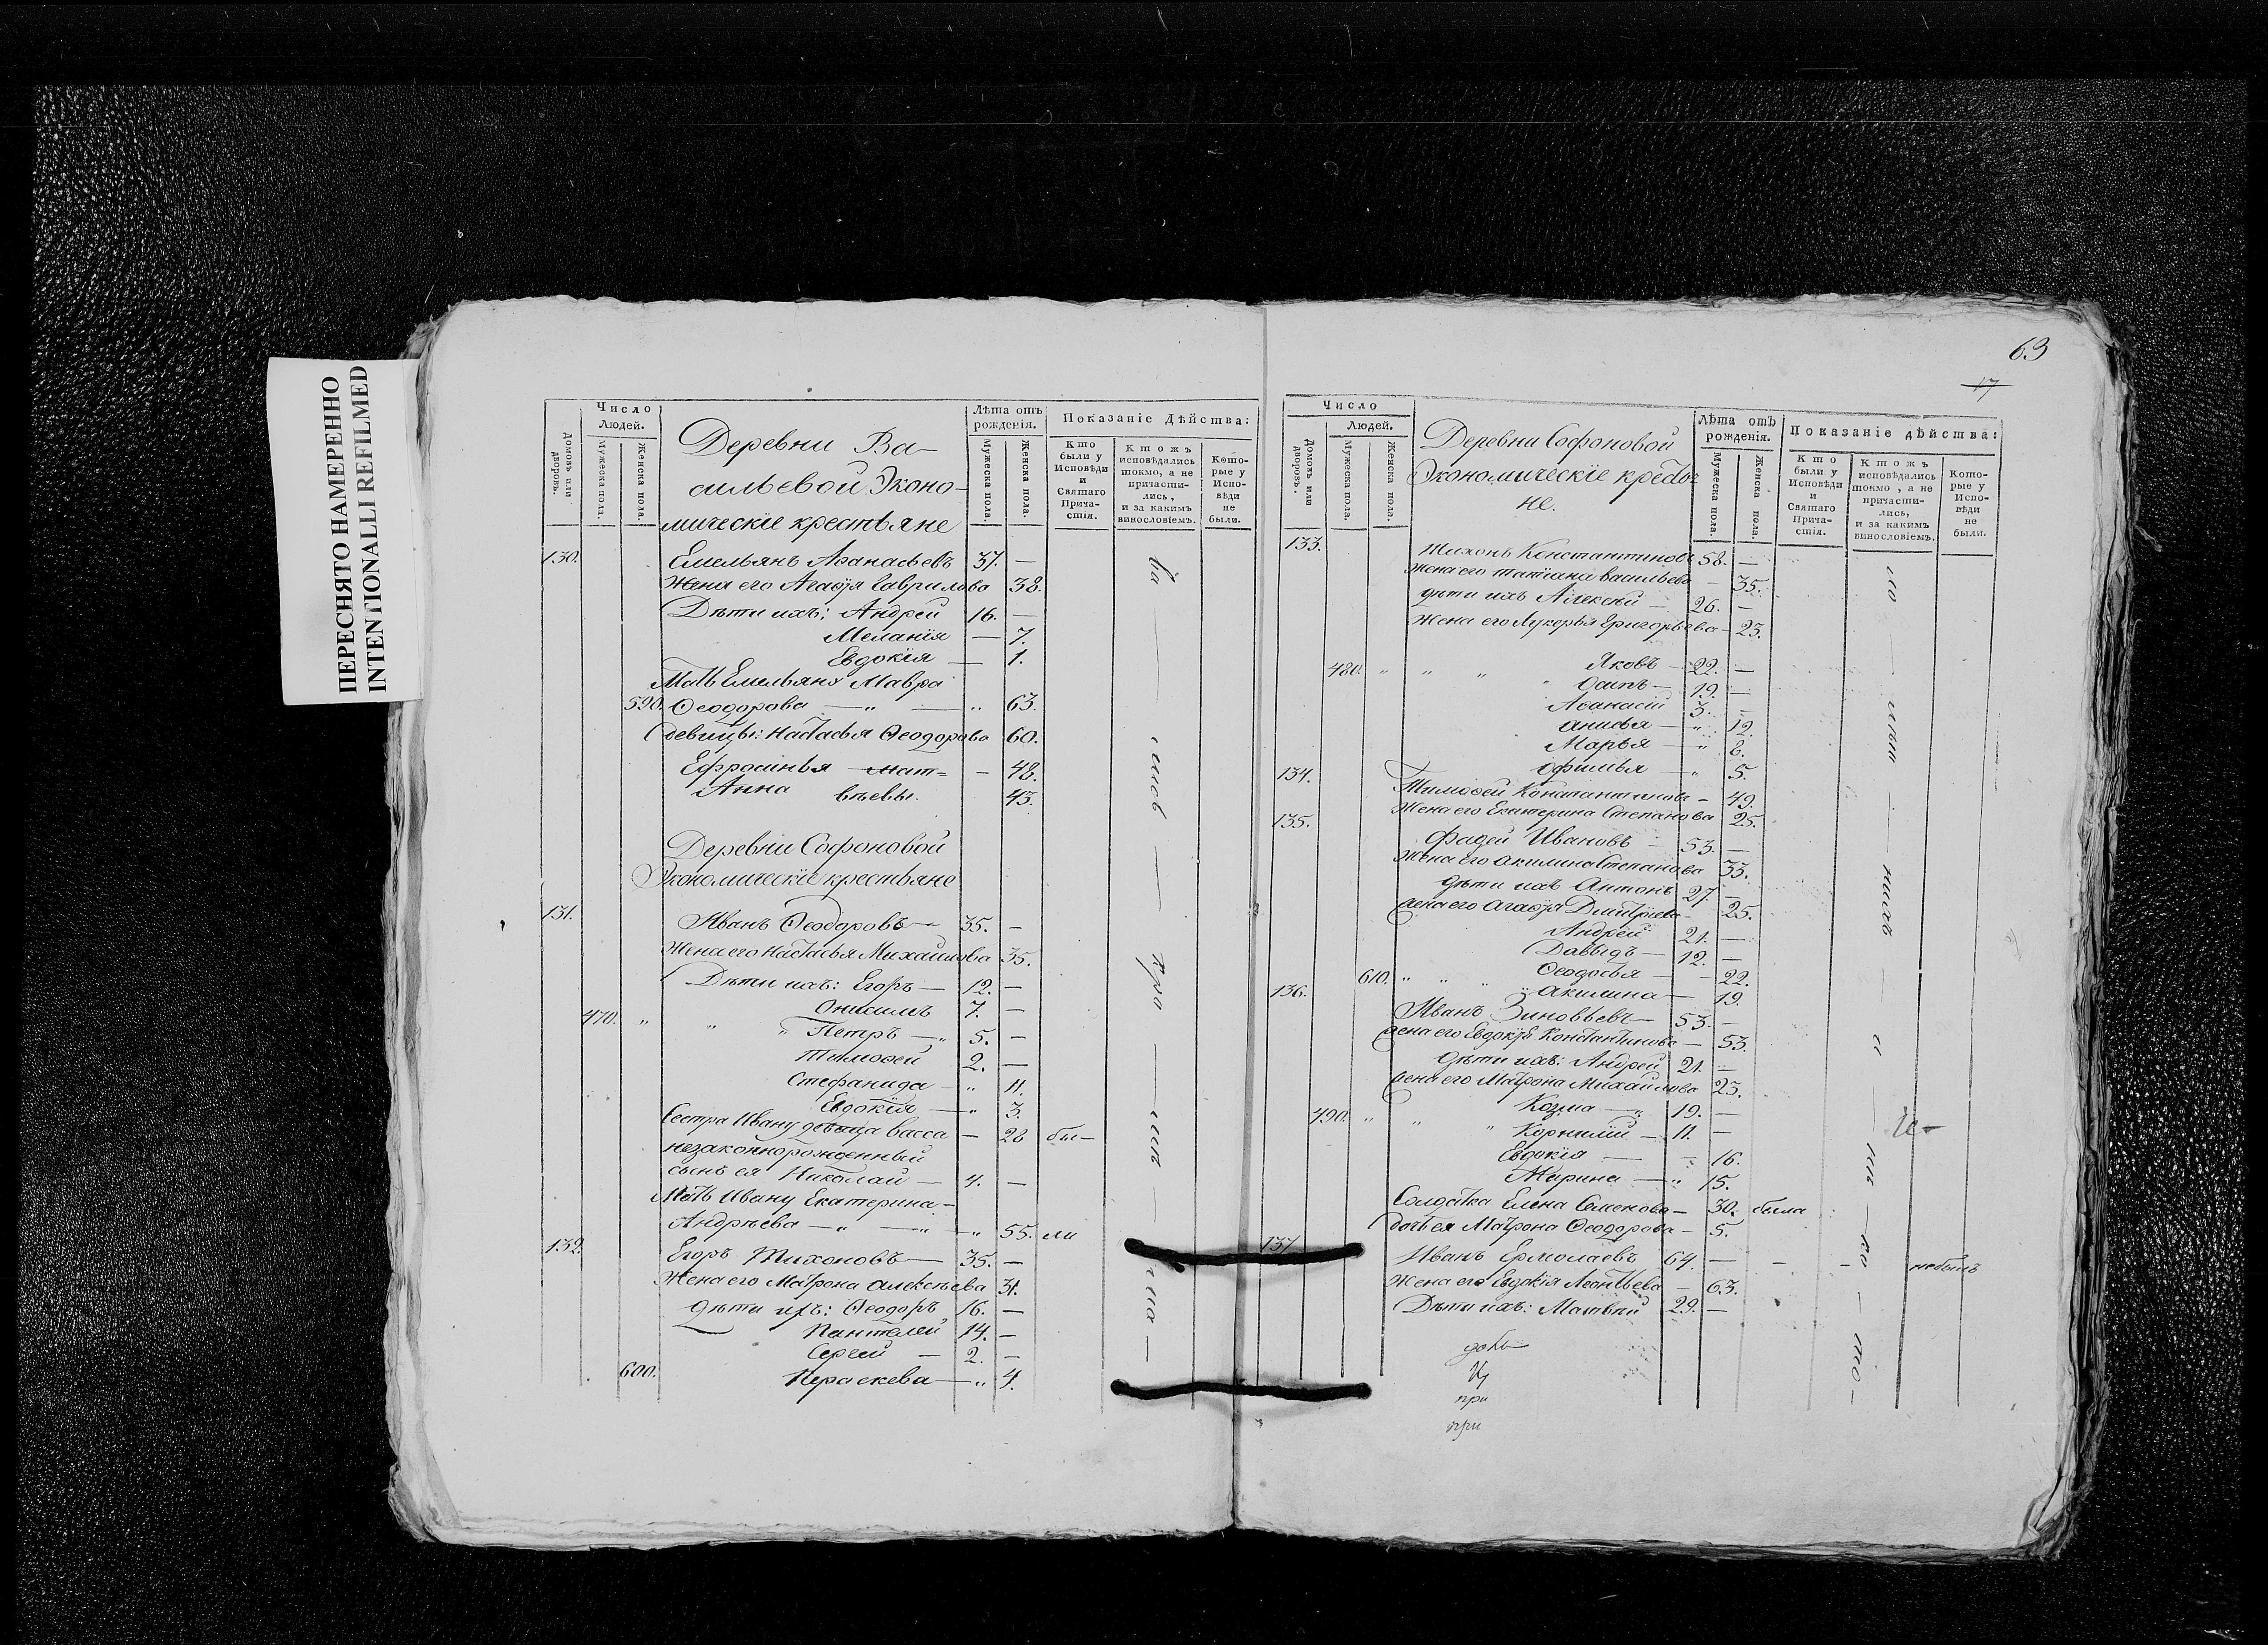 ПЕРЕСНЯТО НАМЕРЕННО
INTENTIONALLI REFILMED
Домовъ или дворовъ.
Число Людей.
Мужеска пола.
Женска пола.
Деревни Ва-
сильевой Эконо-
мическіе крестьяне
Лѣта отъ рожденія.
Мужеска пола.
Женска пола.
Показаніе Дѣйства:
Кто были у Исповѣди и Святаго Прича-стія.
Ктожъ исповѣдались токмо, а не причасти-лись, и за какимъ винословіемъ.
Кото-рые у Испо-вѣди не были.
130. Емельянъ Аѳанасьевъ 37. —
Жена его Агаѳія Гаврилова 38.
Дѣти ихъ: Андрей 16. —
Меланія — 7.
Евдокія — 1.
Мать Емельяну Мавра
590. Ѳеодорова — „ — „ 63.
Девицы: Настасья Ѳеодорова 60.
Ефросинья мат= — 48.
Анна вѣевы. 43.
Деревни Софоновой
Экономическіе крестьяне
131. Иванъ Ѳеодоровъ — 35. —
Жена его Настасья Михаилова 35.
Дѣти ихъ: Егоръ — 12. —
Онисимъ 7. —
470. „ „ „ Петръ — „ 5. —
Тимоѳей 2. —
Стефанида — „ 11.
Евдокія — „ 3.
Сестра Ивану девица Васса — 28 бы—
незаконнорожденный
сынъ ея Николай — 4. —
Мать Ивану Екатерина —
Андреева — „ — „ — „ 55. ли
132. Егоръ Тихоновъ — 35. —
Жена его Матрона Алексѣева 31.
Дѣти ихъ: Ѳеодоръ 16. —
Пантелей 14. —
Сергей — 2. —
600. Параскева — „ 4.
63
17
Домовъ или дворовъ.
Число Людей.
Мужеска пола.
Женска пола.
Деревни Софоновой
Экономическіе крестья
не.
Лѣта отъ рожденія.
Мужеска пола.
Женска пола.
Показаніе дѣйства:
Кто были у Исповѣди и Святаго Прича-стія.
Ктожъ исповѣдались токмо, а не причасти-лись, и за какимъ винословіемъ.
Кото-рые у Испо-вѣди не были.
133. Тихонъ Константиновъ 58. —
Жена его Татіана Васильева — 35.
дѣти ихъ Алексѣй — 26. —
Жена его Лукерья Григорьева — 23.
480. „ „ „ Яковъ — 22. —
„ Осипъ — 19. —
Аѳанасій 3. —
Анисья — „ 12.
Марья — „ 8.
Офимья — „ 5.
134. Тимоѳей Константиновъ — 49.
Жена его Екатерина Степанова 25.
135. Фадей Ивановъ — 53. —
Жена его Акилина Степанова 33.
дѣти ихъ Антонъ 27. —
Жена его Агаѳія Дмитріева — 25.
Андрей 21. —
Давыдъ — 12. —
610. „ „ „ Ѳеодосья — — 22.
„ Акилина — 19.
136. Иванъ Зиновьевъ — 53. —
Жена его Евдокія Константинова — 53.
дѣти ихъ: Андрей 21. —
Жена его Матрона Михайлова 23.
Козма — „ 19. —
490. „ „ „ Корнилій — 11. —
Евдокія — „ 16.
Марина — „ 15.
Солдатка Елена Семенова — 30. была
дочь ея Матрона Ѳеодорова — 5.
137 Иванъ Ермолаевъ 64. — — — небылъ
Жена его Евдокія Леонтьева — 63.
Дѣти ихъ: Матвѣй 29. —
при
при